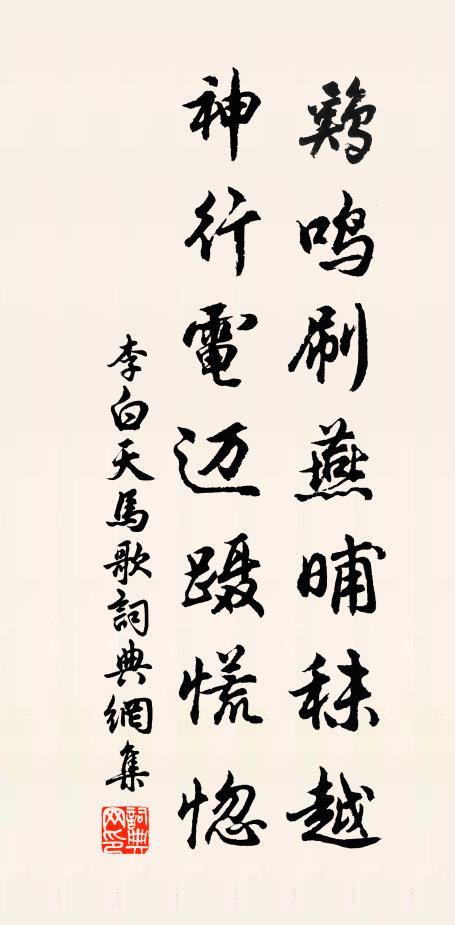 鷄鸣刷燕晡秣越
神行電迈蹑慌惚
李白天馬歌詞典網集
詞典
网印